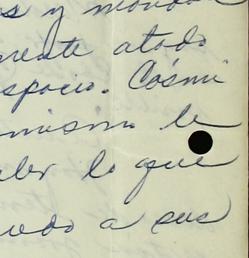 s y mundo
mente atado
spacio. Cósmi
mismo le
ber lo que
uedo a sus